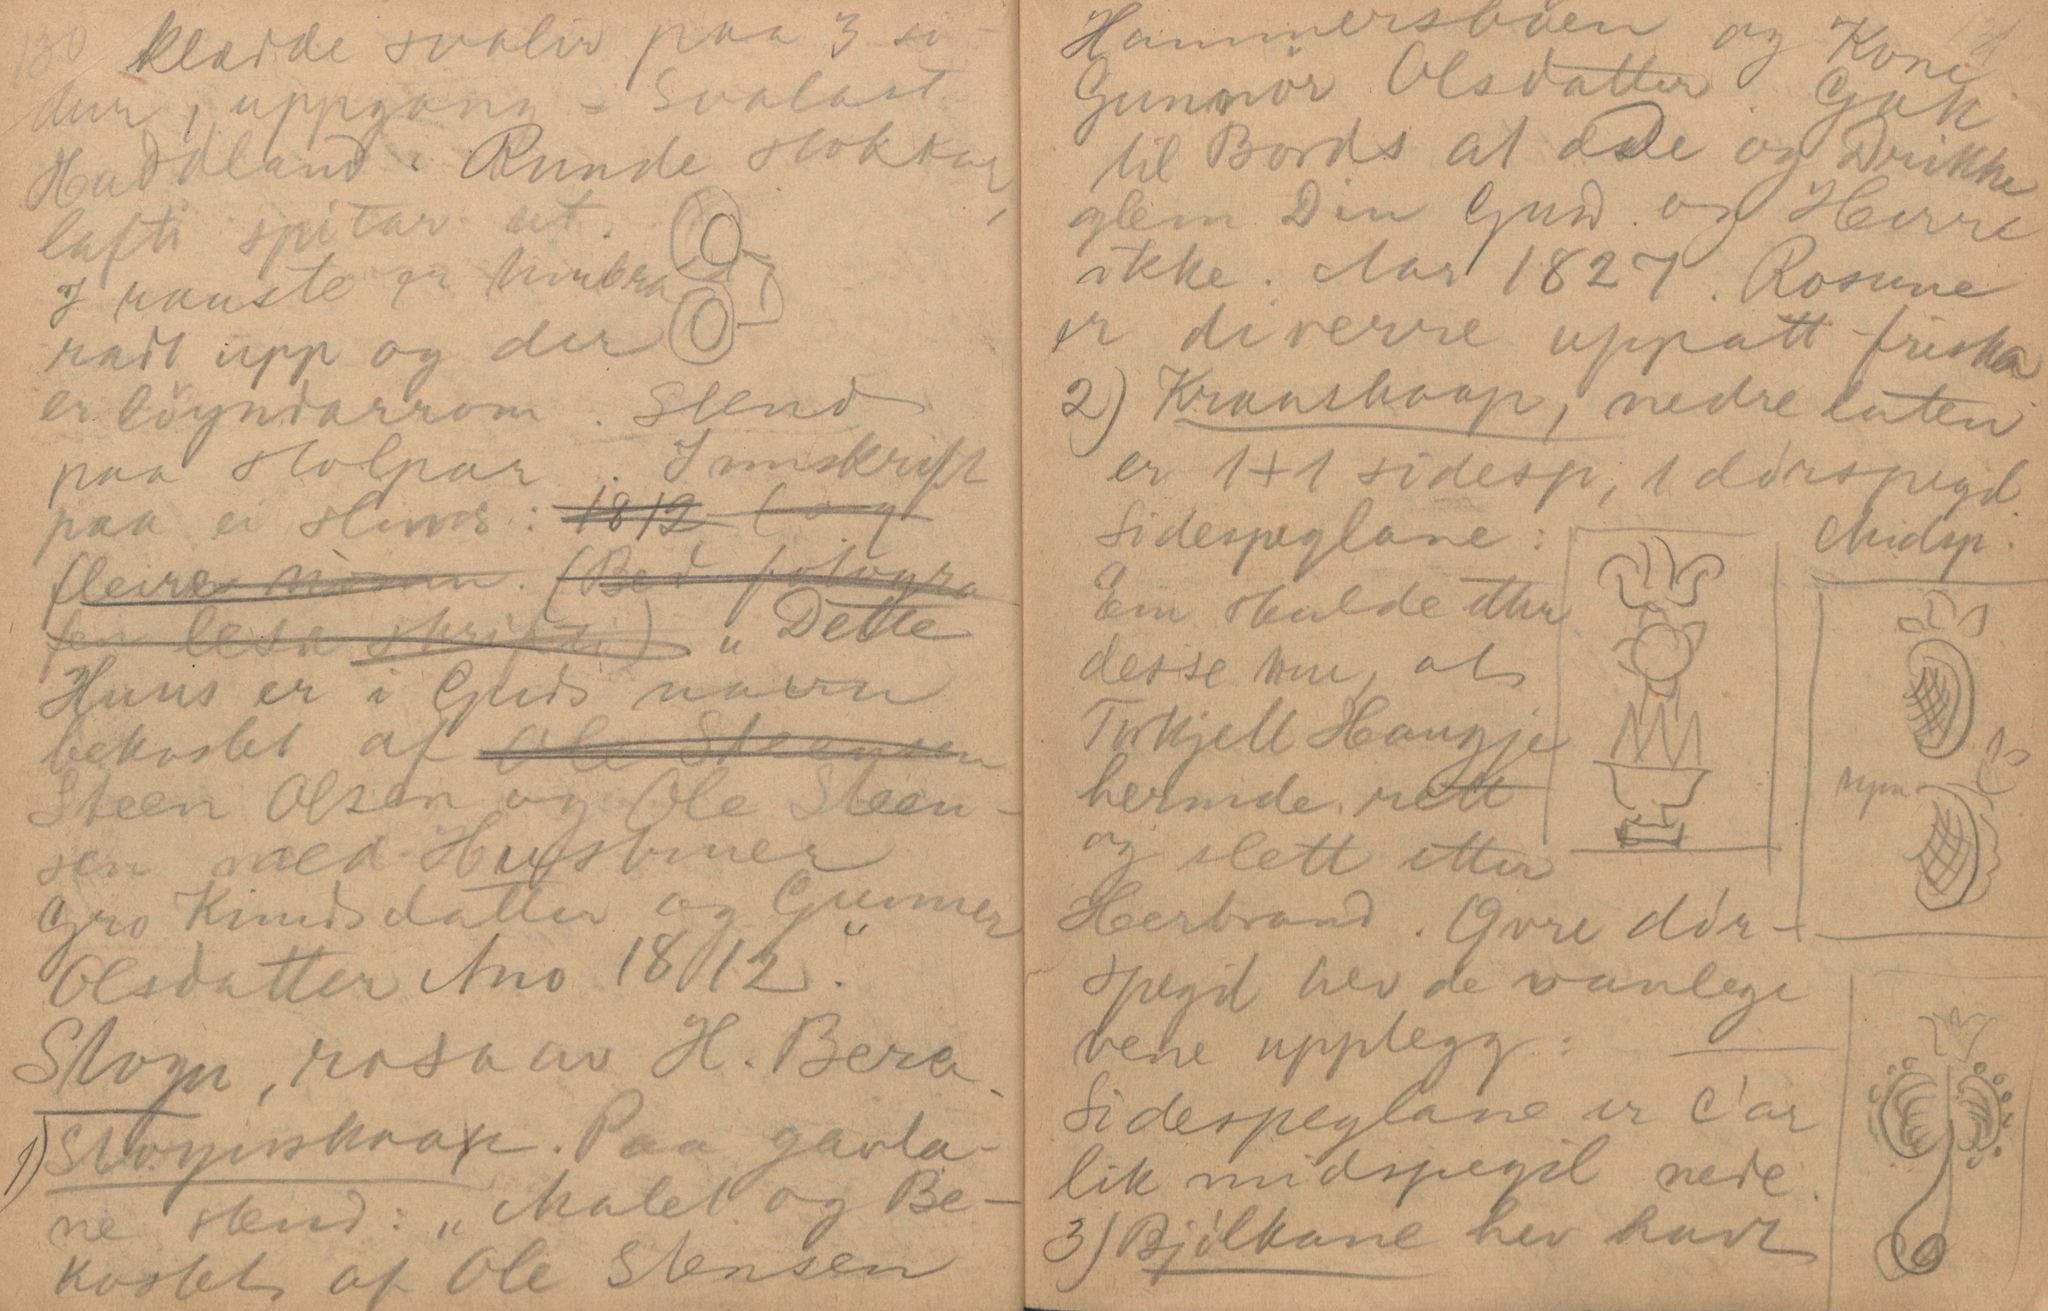 130
klædde svalir paa 3 si-
dur, uppgang = Svalast
Haddland. Runde stokkar,
lafti spitar ut.
I rauste er timbra
radt upp og der
er löyndarrom. Stend
paa stolpar. Innskrift
paa ei : 1812 (og
fleire . (Bed fotogra
fen lesa skrifti) „Dette
Huus er i Guds navn
bekostet af Ole Steensen
Steen Olsen og Ole Steen-
sen med Hustruer
Gro Knudsdatter og Gunner
Olsdatter Ano 1812."
Stogu, rosa av H. Bera.
1) Stoguskaap. Paa gavla-
ne stend: „Malet og Be-
kostet af Ole Stensen
131
Hammersbøen og Kone
Gunnør Olsdatter. Gak
til Bords at æde og Drikke
glem Din Gud og Herre
ikke. Aar 1827. Rosune
er diverre uppatt friska
2) Kraaskaap, nedre luten
er 1+1 sidesp, 1 dørspegil
Sidespeglane:
Midsp.
Ein skulde etter
desse tru, at
Torkjell Haugje
hermde rett
og slett etter
Herbrand. Øvre dør-
spegil hev de vanlege
vene upplegg:
Sidespeglane er c'ar
lik midspegil nede.
3) Bjølkane hev havt